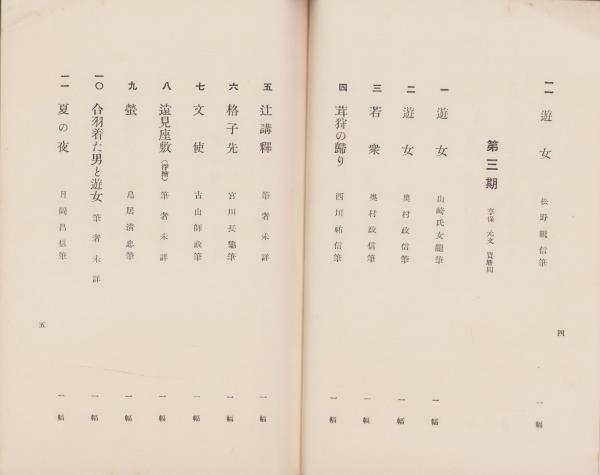 一一 遊女 松野親信筆 一幅
第三期 享保 元文 寛延間
一 遊女 山崎氏女龍筆 一幅
二 遊女 奥村政信筆 一幅
三 若衆 奥村政信筆 一幅
四 茸狩の歸り 西川祐信筆 一幅
四
五 辻講釋 筆者未詳 一幅
六 格子先 宮川長龜筆 一幅
七 文使 古山師政筆 一幅
八 遠見座敷(浮繪) 筆者未詳 一幅
九 螢 鳥居淸忠筆 一幅
一〇 合羽着た男と遊女 筆者未詳 一幅
一一 夏の夜 月岡昌信筆 一幅
五